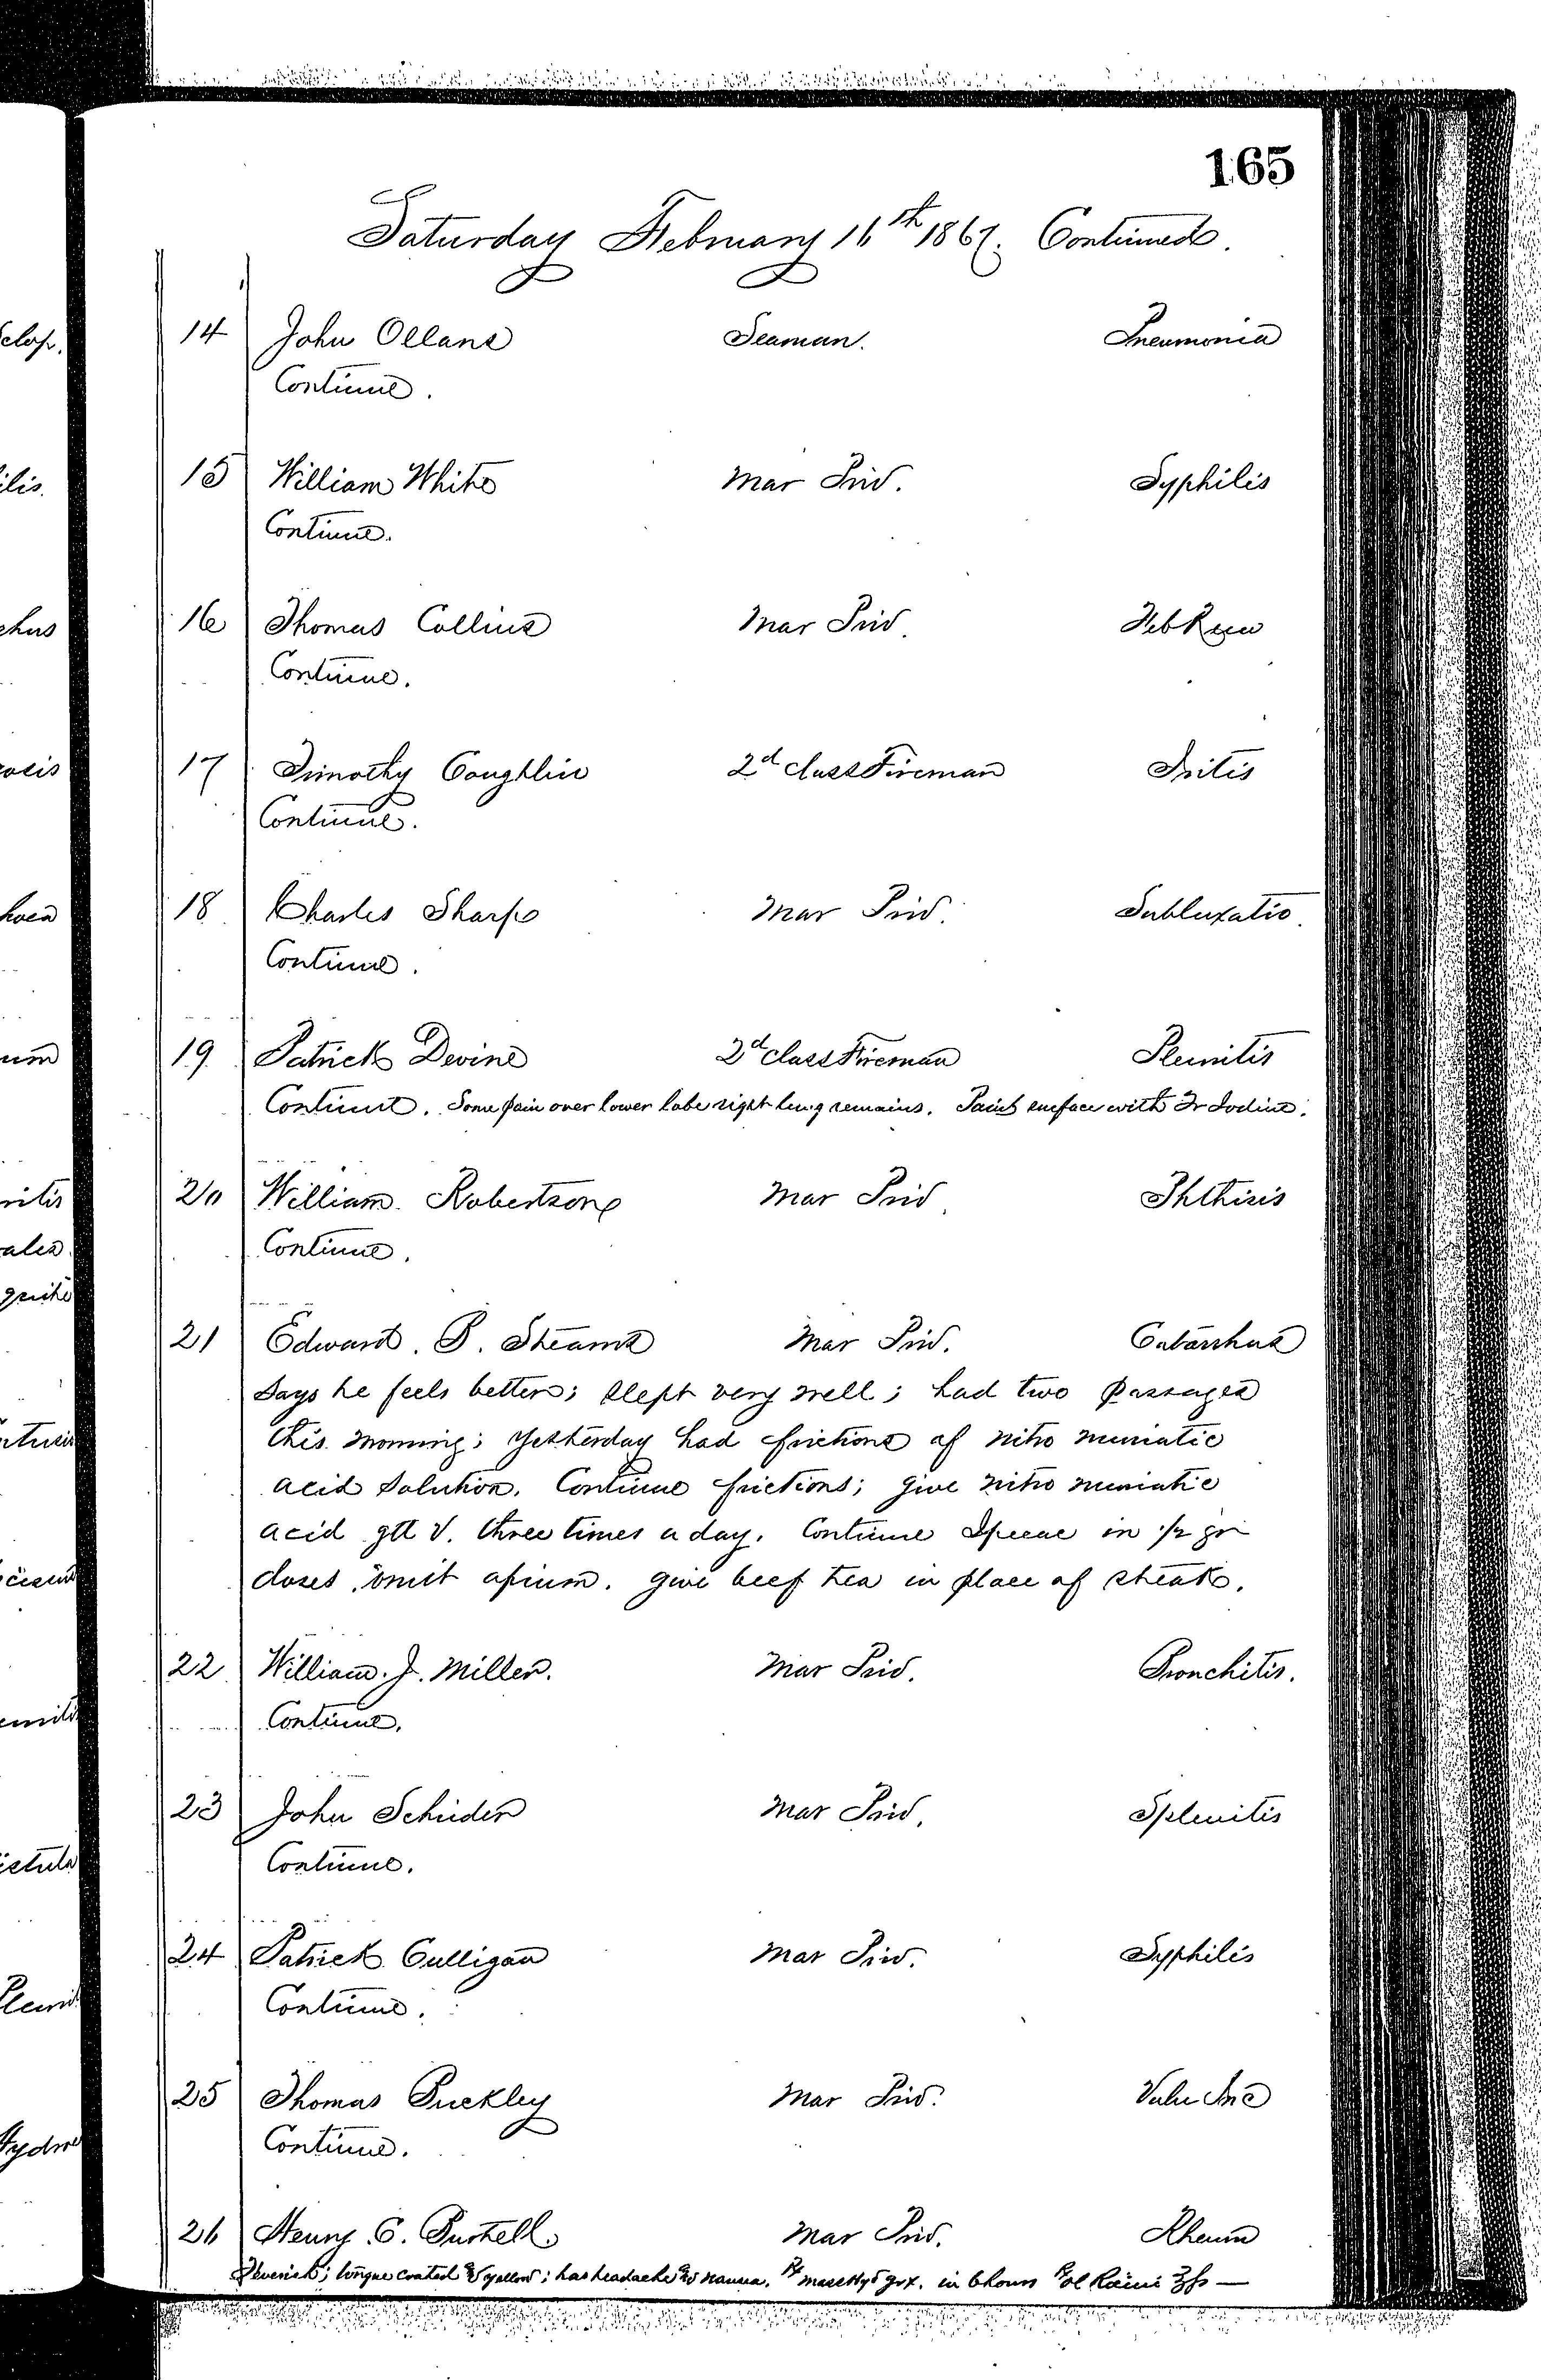 165
Saturday February 16th 1867. Continued.
14 John Ollans Seaman. Pneumonia
Continue.
15 William White Mar Priv. Syphilis
Continue.
16 Thomas Collins Mar Priv. Feb
Continue.
17 Timothy Coughlin 2d class Fireman Iritis
Continue.
18 Charles Sharp Mar Priv. Subluxatio.
Continue.
19 Patrick Devine 2d class Fireman Pleuritis
Continue. Some pain over lower lobe right lung remains. Paint surface with Tr Iodine.
20 William Robertson Mar Priv. Phthisis
Continue.
21 Edward. P. Stearns Mar Priv. Catarrhus
Says he feels better; slept very well; had two passages
this morning; yesterday had frictions of nitro muriatic
acid solution. Continue frictions; give nitro muriatic
acid gtt V. three times a day. Continue Ipecac in 1/2 gr
doses. omit opium. give beef tea in place of steak.
22 William. J. Miller. Mar Priv. Bronchitis.
Continue.
23 John Mar Priv. Splenitis
Continue.
24 Patrick Culligan Mar Priv. Syphilis
Continue.
25 Thomas Buckley Mar Priv. Vuln Inc
Continue.
26 Henry C. Mar Priv. Rheum
Feverish; tongue coated & yellow; has headache & nausea. ℞ mass Hyd grx. in 6 hours ℞ Ol Ricini ℥fs —